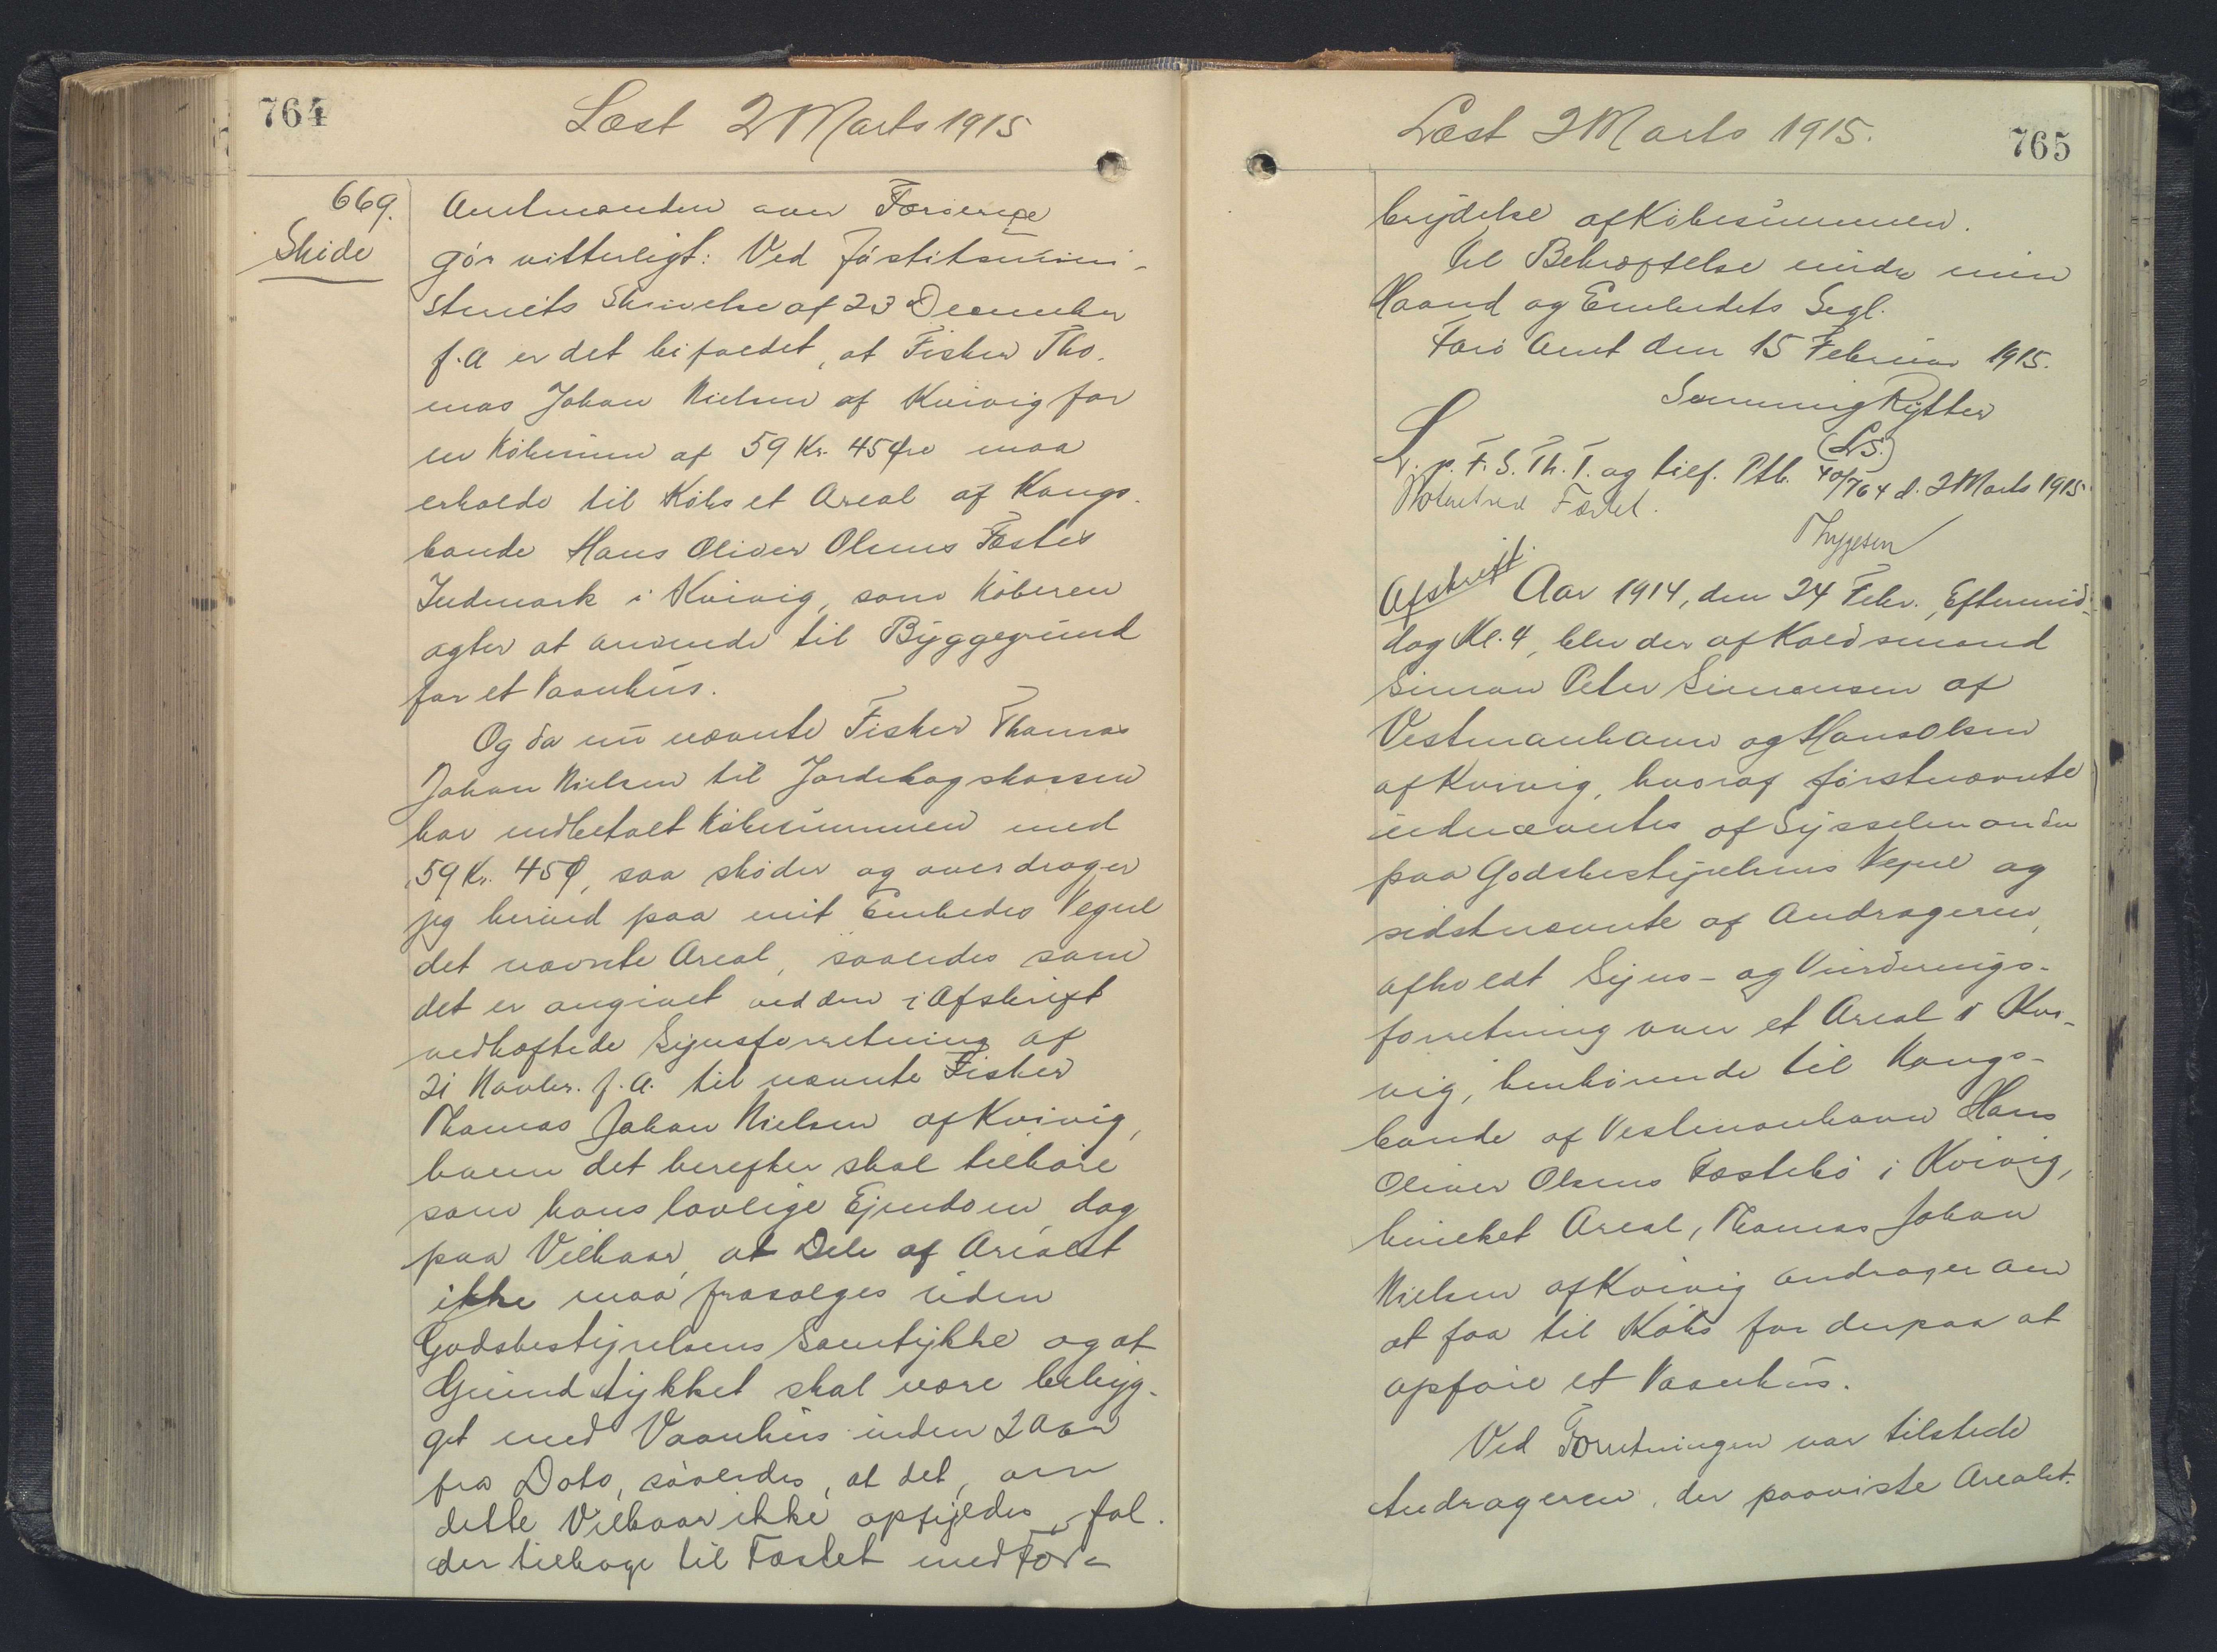 764
Læst 2 Marts 1915
669.
Skøde
Amtmanden over Færøerne
gör vitterligt: Ved Justitsmini-
steriets Skrivelse af 23 December
f. A er det bifaldet, at Fisker Tho-
mas Johan Nielsen af Kvivig for
en Købesum af 59 Kr. 45 Øre maa
erholde til Købs et Areal af Kongs-
bonde Hans Oliver Olsens Fæstes
Indmark i Kvivig, som Köberen
agter at anvende til Byggegrund
for et Vaanhus.
Og da nu nævnte Fisker Thomas
Johan Nielsen til Jordebogskassen
har indbetalt Købesummen med
59 Kr. 45 Ø, saa skøder og overdrager
jeg herved paa mit Embedes Vegne
det nævnte Areal, saaledes som
det er angivet ved den i Afskrift
vedhæftede Synsforretning af
21 Novbr. f. A. til nævnte Fisker
Thomas Johan Nielsen af Kvivig,
hvem det herefter skal tilhøre
som hans lovlige Ejendom, dog
paa Vilkaar, at Dele af Arealet
ikke maa frasælges uden
Godsbestyrelsens Samtykke og at
Grundstykket skal være bebyg-
get med Vaanhus inden 2 Aar
fra Dato, saaledes, at det, om
dette Vilkaar ikke opfyldes, fal-
der tilbage til Fæstet med For-
Læst 2 Marts 1915.
765
brydelse af Købesummen.
Til Bekræftelse under min
Haand og Embedets Segl.
Færø Amt den 15 Februar 1915.
Svenning Rytter
(LS.)
L. p. F. S. Th. T. og tilf. Ptb. 40/764 d. 2 Marts 1915
Noteret ved Fæstet.
Thygesen
Afskrift.
Aar 1914, den 24 Febr. Eftermid-
dag Kl. 4, blev der af Koldsmand
Simon Peter Simonsen af
Vestmanhavn og Hans Olsen
af Kvivig, hvoraf förstnævnte
udnævntes af Sysselmanden
paa Godsbestyrelsens Vegne og
sidstnævnte af Andrageren,
afholdt Syns- og Vurderings-
forretning over et Areal i Kvi-
vig, henhörende til Kongs-
bonde af Vestmanhavn Hans
Oliver Olsens Fæstebö i Kvivig,
hvilket Areal, Thomas Johan
Nielsen af Kvivig andrager om
at faa til Købs for derpaa at
opføre et Vaanhus.
Ved Forretningen var tilstede
Andrageren, der paaviste Arealet.